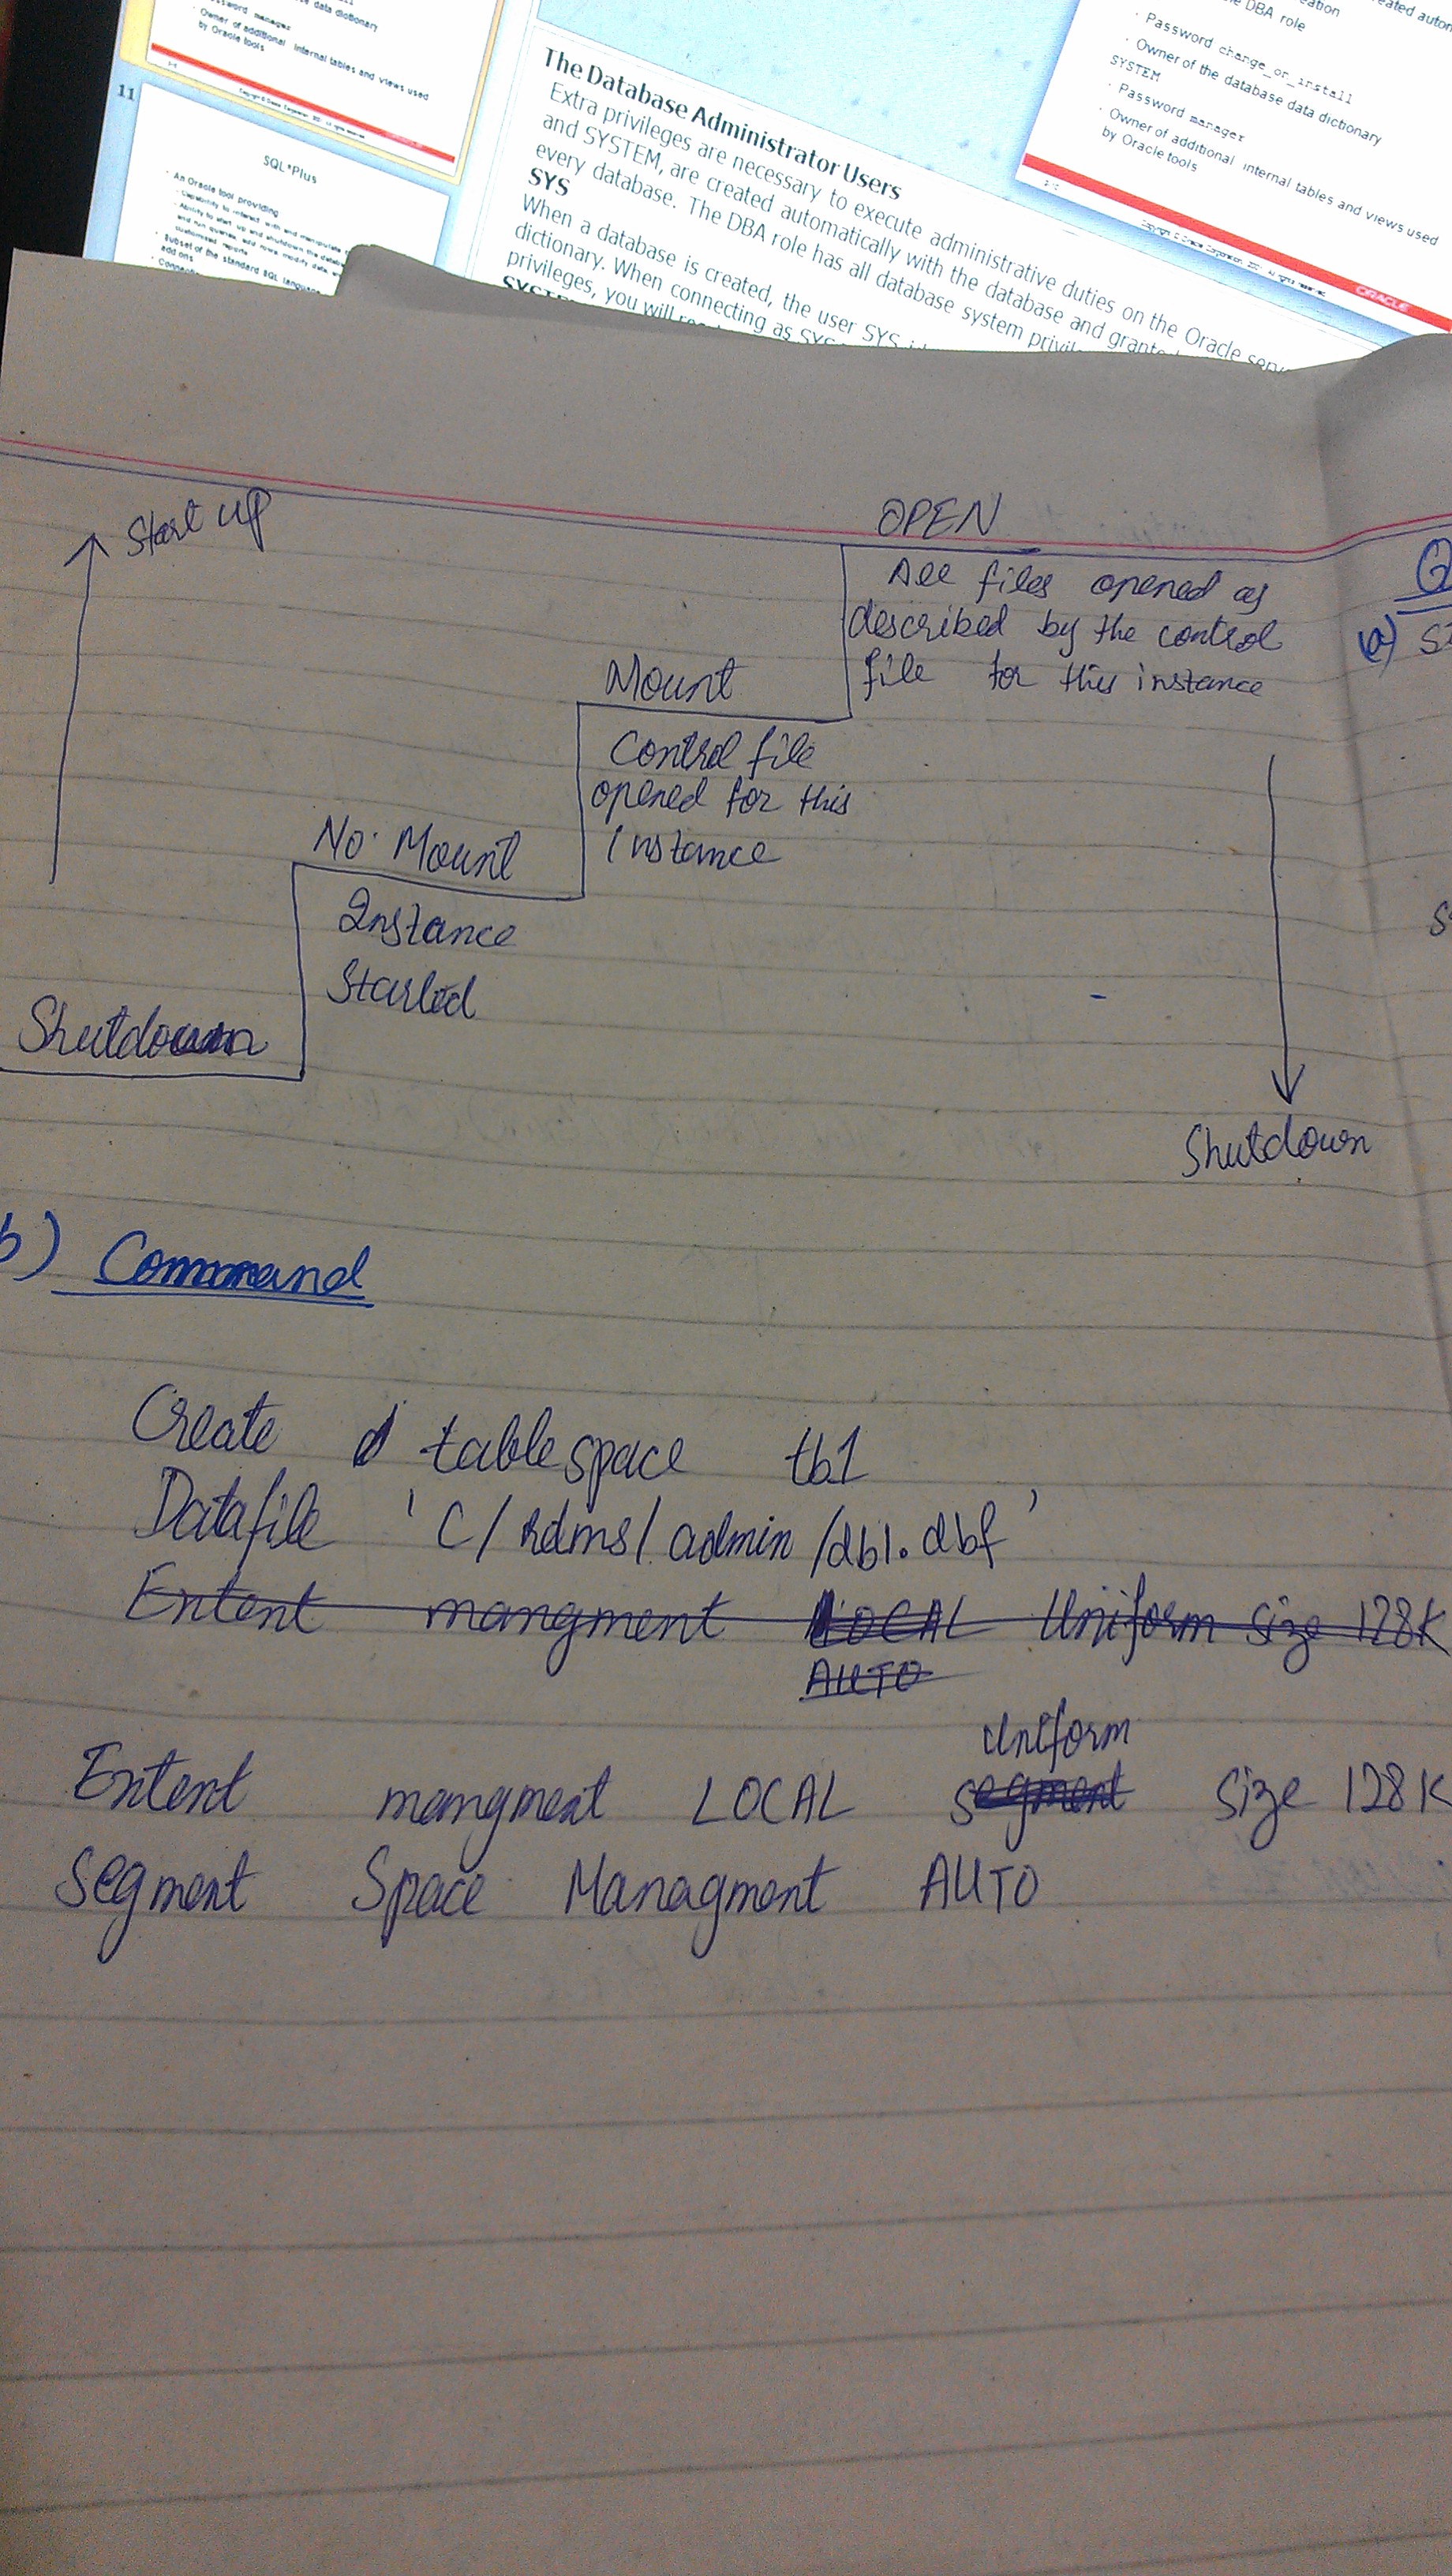 data dictionary
Owner of additional internal tables and views used
by Oracle tools
11
SQL*Plus
An Oracle tool providing
Subset of the standard SQL language
The Database Administrator Users
Extra privileges are necessary to execute administrative duties on the Oracle
and SYSTEM, are created automatically with the database and
every database. The DBA role has all database system
SYS
When a database is created, the user SYS
dictionary. When connecting as
privileges, you will
DBA role
Password change_on_install
Owner of the database data dictionary
SYSTEM
Password manager
Owner of additional internal tables and views used
by Oracle tools
ORACLE
Start up
OPEN
All files opened as
described by the control
file for this instance
Mount
Control file
opened for this
instance
No Mount
Instance
Started
Shutdown
Shutdown
(a)
b) Command
Create tablespace tb1
Datafile 'C/rdms/admin/db1.dbf'
Extent mangment LOCAL Uniform size 128K
AUTO
Uniform
Extent mangment LOCAL segment size 128K
Segment Space Managment AUTO